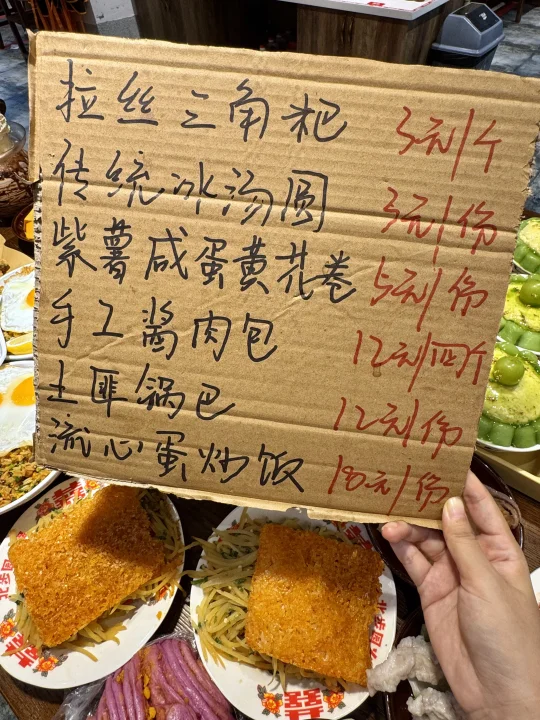 拉丝三角粑 3元/个
传统冰汤圆 3元/份
紫薯咸蛋黄花卷 5元/份
手工酱肉包 12元/四个
土匪锅巴 12元/份
流心蛋炒饭 18元/份
囍
囍